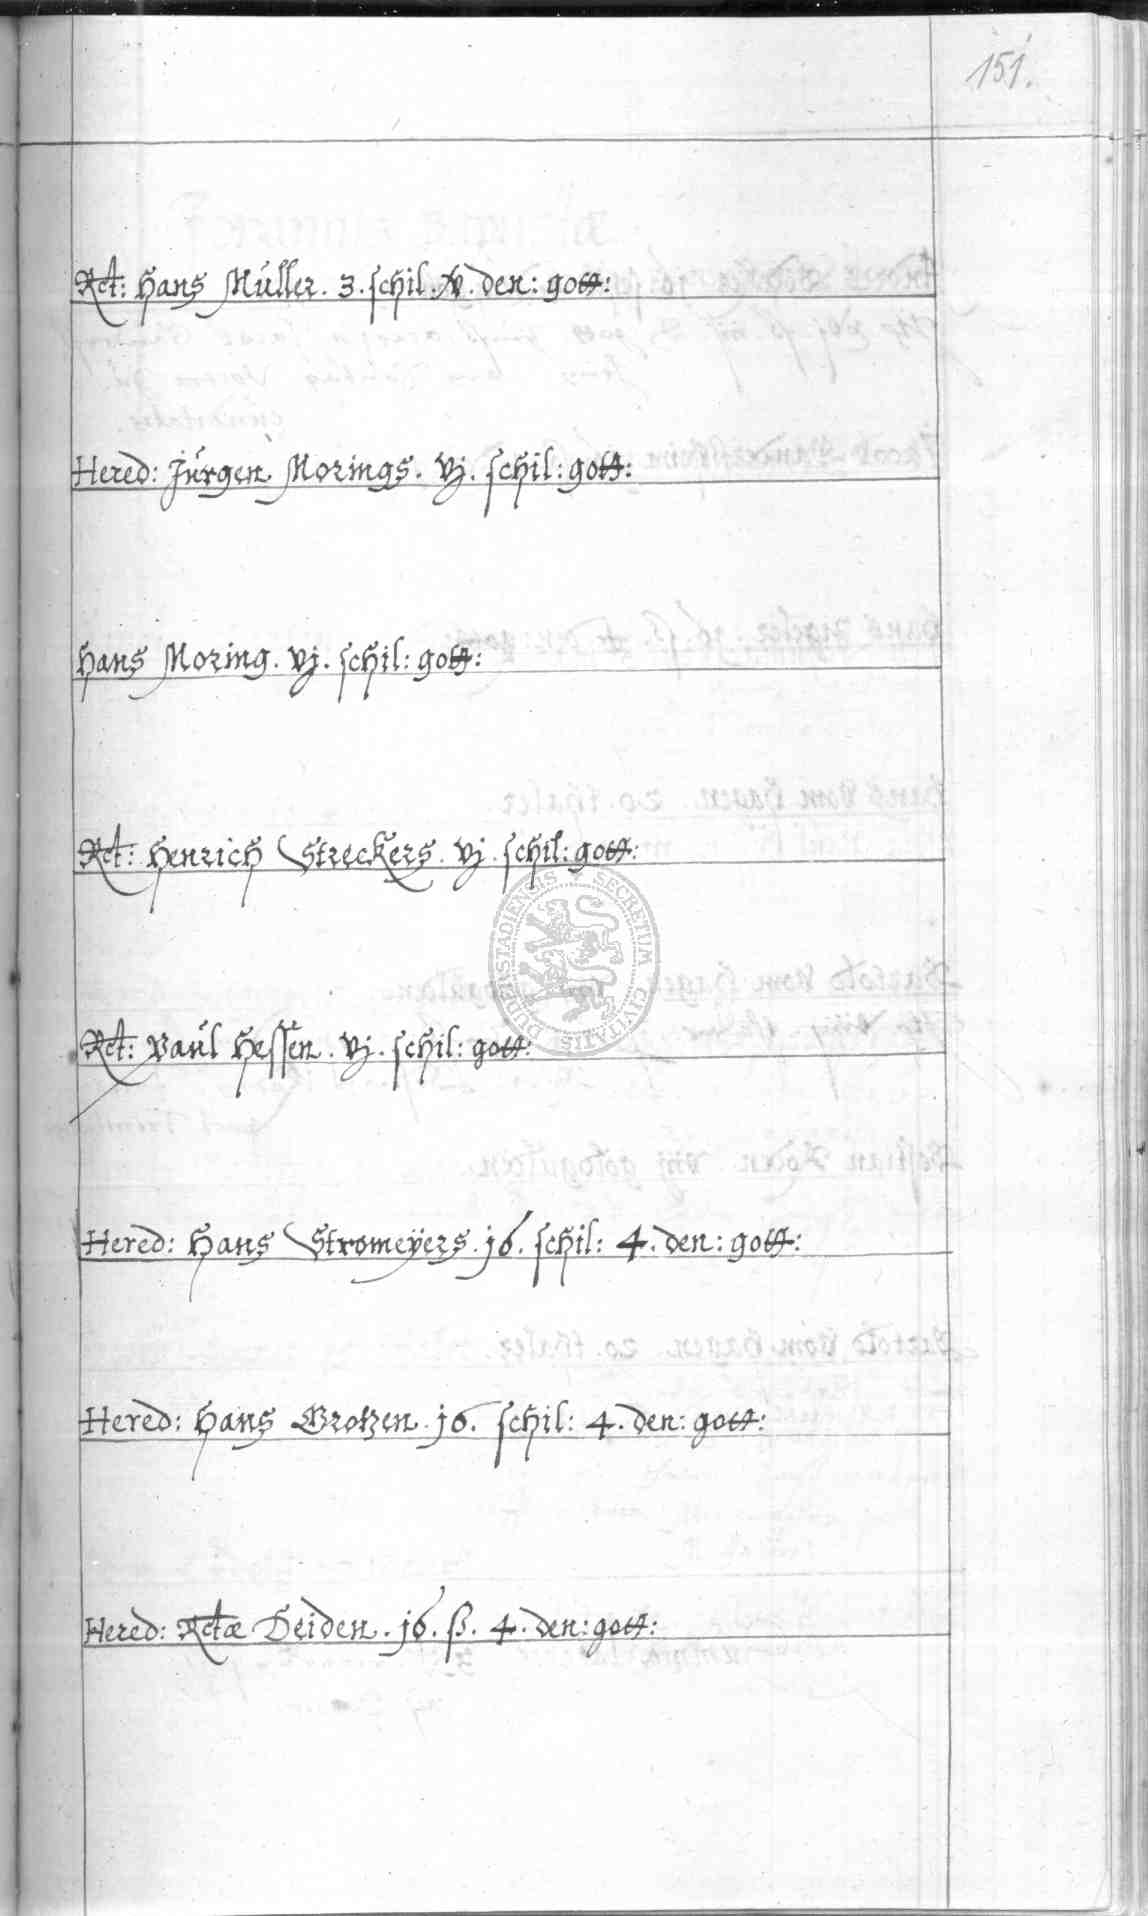 151.
Rct: Hans Müller. 3. schil. iv. den: gott:
Hered: Jürgen Morings. vj. schil: gott:
Hans Moring. vj. schil: gott:
Rct: Henrich Streckers. vj. schil: gott:
DUDERSTADIENSIS SECRETUM CIVITATIS
Rct: Paul Hessen. vj. schil: gott:
Hered: Hans Stromeÿers. 16. schil: 4. den: gott:
Hered: Hans Grotzen. 16. schil: 4. den: gott:
Hered: Rctæ Deiden. 16. ß. 4. den: gott: